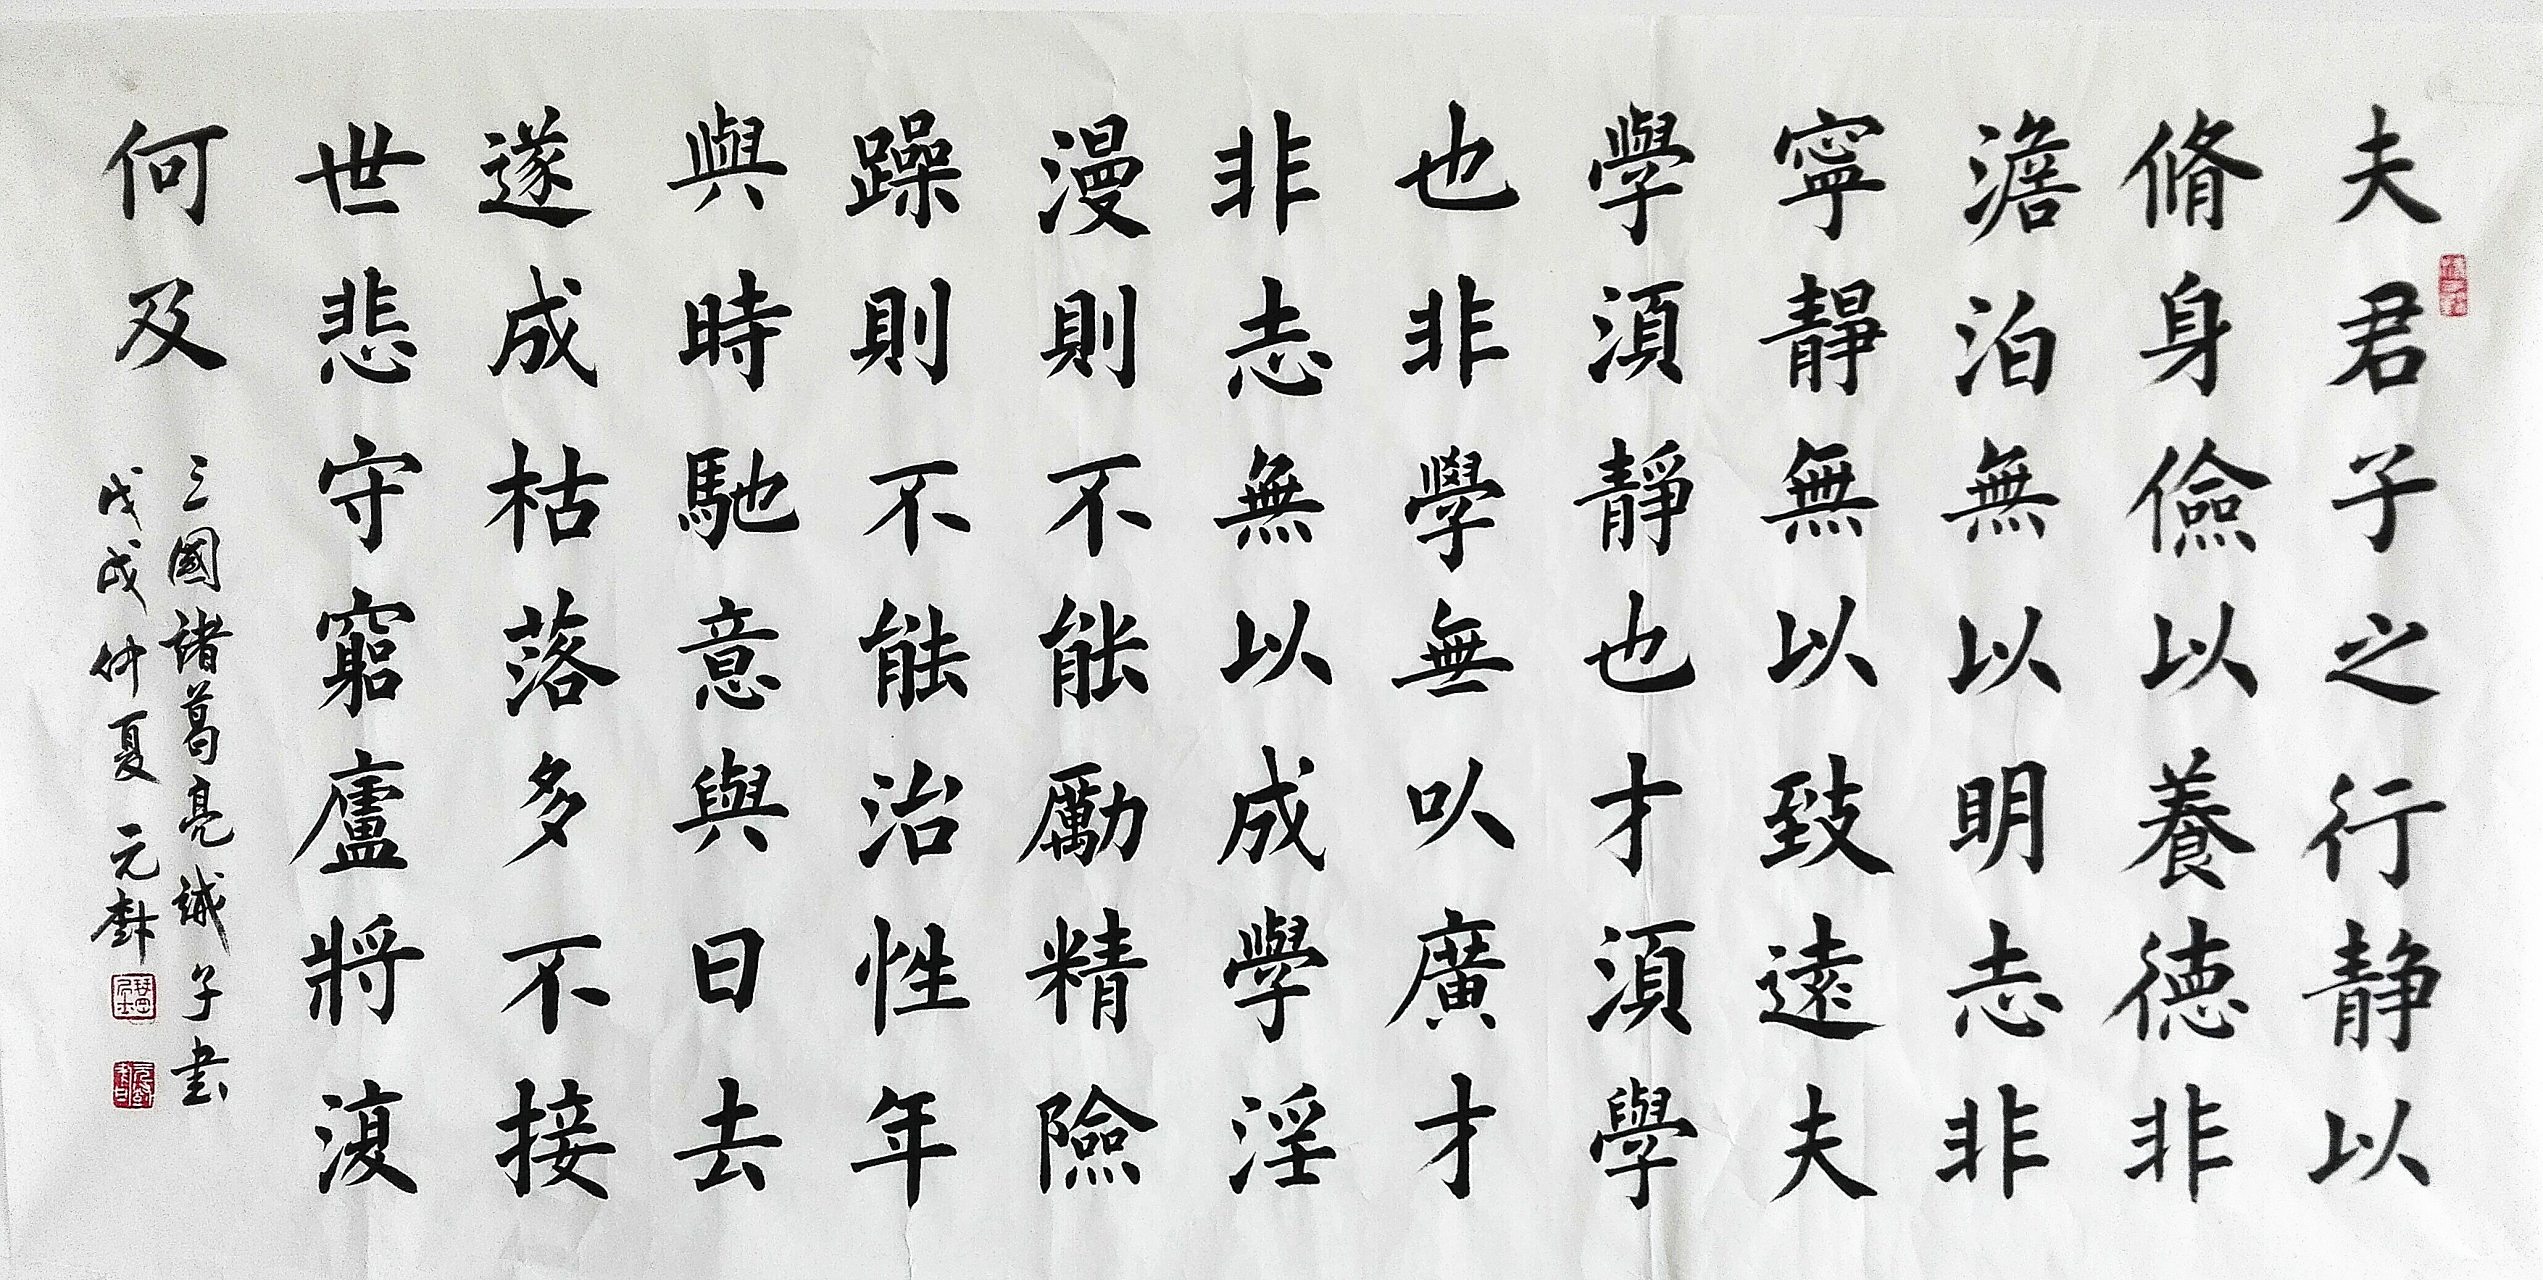 夫君子之行静以
脩身儉以養德非
澹泊無以明志非
寧靜無以致遠夫
學須靜也才須學
也非學無以廣才
非志無以成學淫
漫則不能勵精險
躁則不能治性年
與時馳意與日去
遂成枯落多不接
世悲守窮廬將復
何及
三國諸葛亮誡子書
戊戌仲夏元